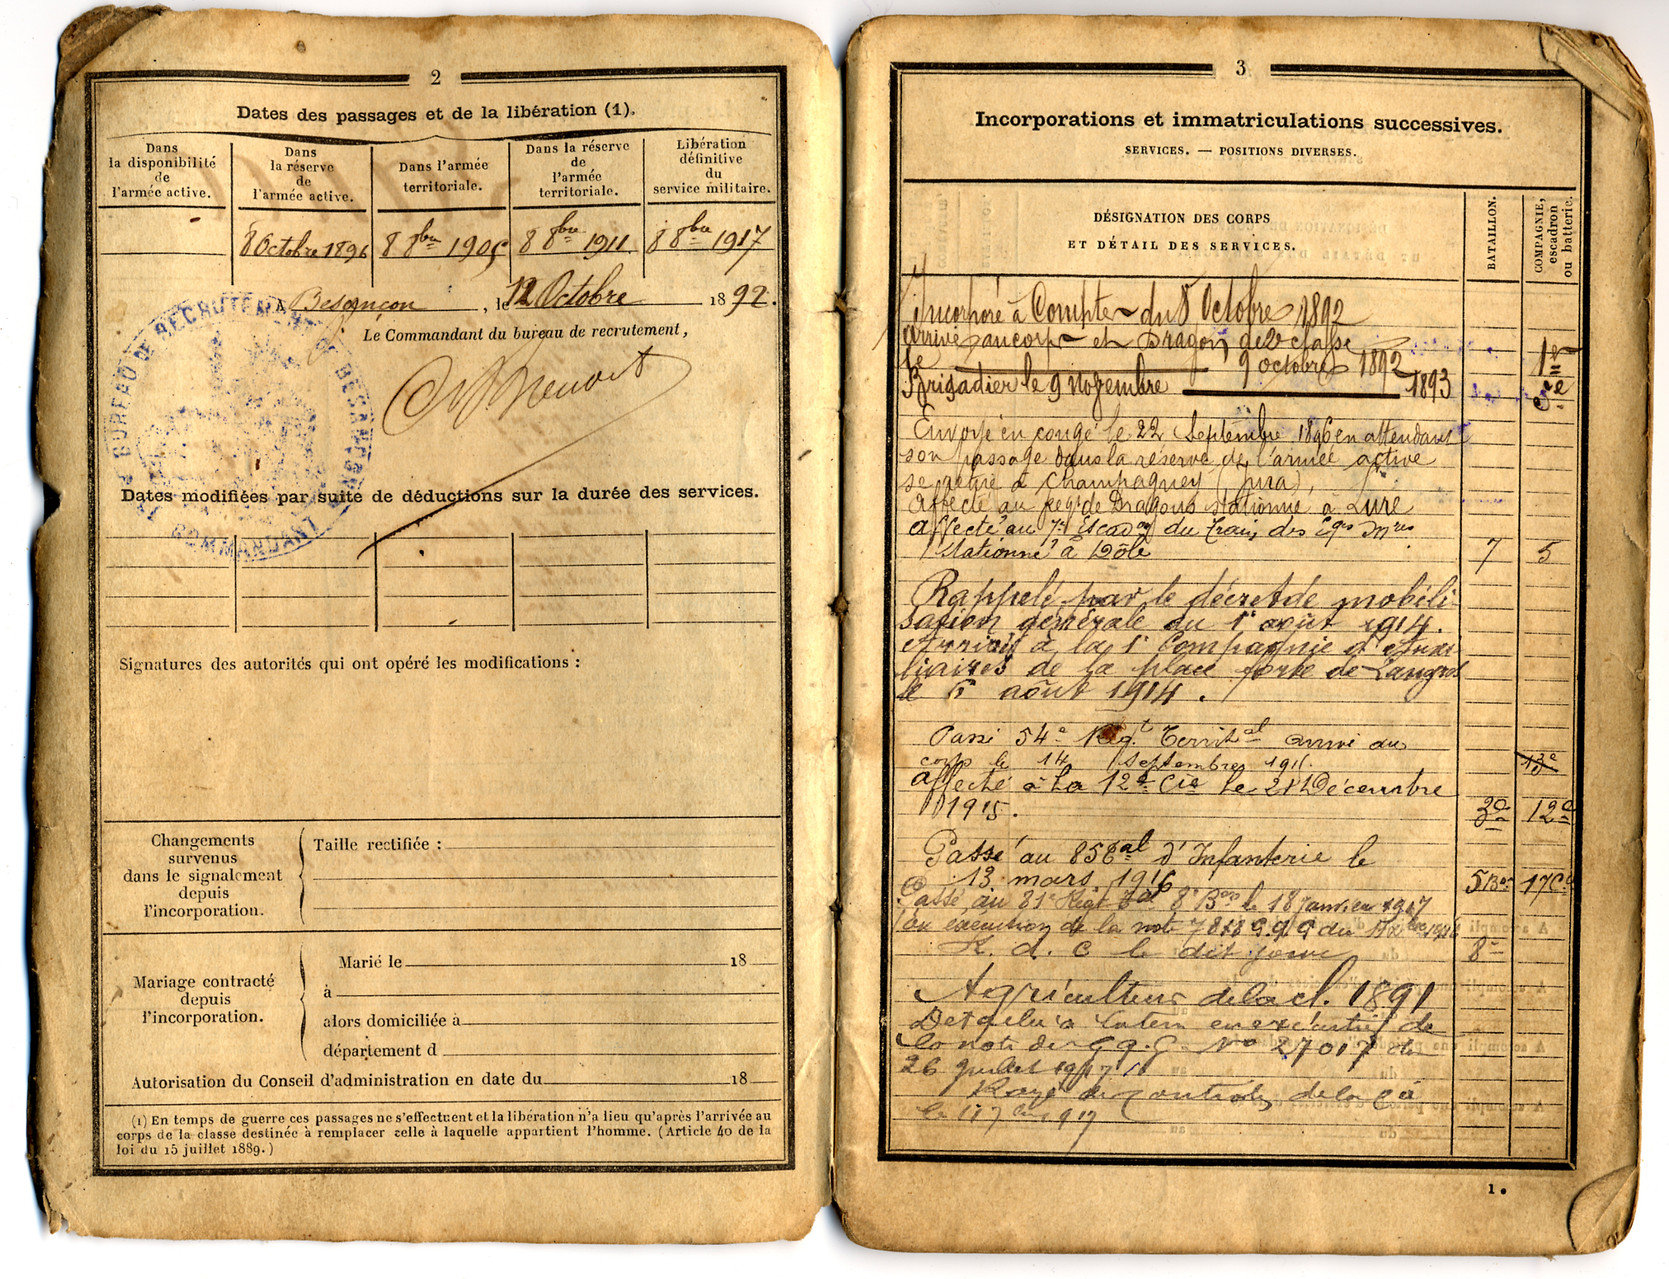 2
Dates des passages et de la libération (1).
Dans la disponibilité de l'armée active.
Dans la réserve de l'armée active.
Dans l'armée territoriale.
Dans la réserve de l'armée territoriale.
Libération définitive du service militaire.
8 Octobre 1896
8 8bre 1905
8 8bre 1911
8 8bre 1917
A Besançon, le 12 Octobre 1892.
Le Commandant du bureau de recrutement,
BUREAU DE RECRUTEMENT DE BESANÇON
COMMANDANT
Dates modifiées par suite de déductions sur la durée des services.
Signatures des autorités qui ont opéré les modifications :
Changements survenus dans le signalement depuis l'incorporation.
Taille rectifiée :
Mariage contracté depuis l'incorporation.
Marié le 18
à
alors domiciliée à
département d
Autorisation du Conseil d'administration en date du 18
(1) En temps de guerre ces passages ne s'effectuent et la libération n'a lieu qu'après l'arrivée au
corps de la classe destinée à remplacer celle à laquelle appartient l'homme. (Article 40 de la
loi du 15 juillet 1889.)
3
Incorporations et immatriculations successives.
SERVICES. — POSITIONS DIVERSES.
DÉSIGNATION DES CORPS
ET DÉTAIL DES SERVICES.
BATAILLON.
COMPAGNIE, escadron ou batterie.
Incorporé à Compter du 8 Octobre 1892
Arrivé au corps et Dragon de 2e classe
le 9 octobre 1892 1er
Brigadier le 9 novembre 1893
Envoyé en congé le 22 Septembre 1896 en attendant
son passage dans la réserve de l'armée active
se retire à Champagney (Jura),
Affecté au Régt de Dragons stationné à Lure
affecté au 7e Escadon du train des Eqes Mres
Stationné à Dôle 7 5
Rappelé par le décret de mobili-
sation générale du 1er août 1914.
Arrivé à la 1e Compagnie d'Auxi-
liaires de la place forte de Langres
le août 1914.
Passé 54e Régt Territal arrivé au
corps le 14 Septembre 13e
affecté à La 12e Cie le 21 Décembre
1915. 3e 12e
Passé au d'Infanterie le
13 mars 1916 5 Bon 17 Cie
Passé au 81e Régt 8e Bon le 18 janvier 1917
en exécution de la note
R. d. C le dit jour 8e
Agriculteur de la cl. 1891
en exécution de
la note du G.Q.G. No 27017 du
26 Juillet 1917
Rayé des Controles de la Cie